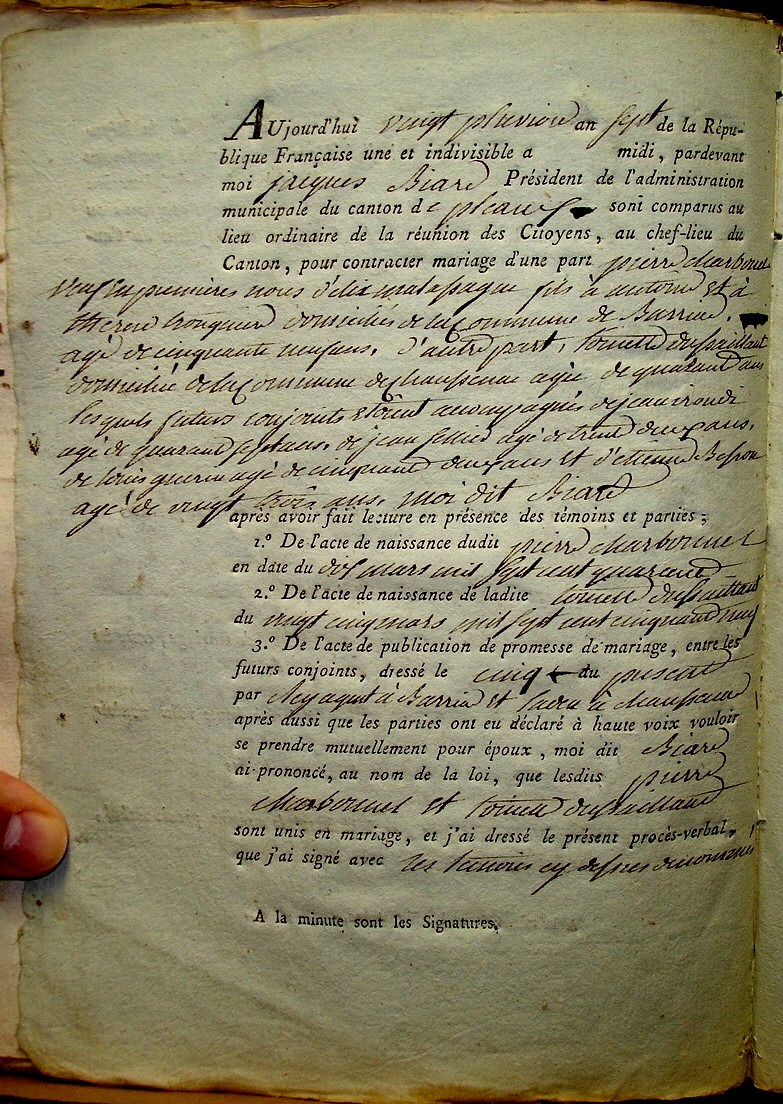 AUjourd'hui vingt pluviose an sept de la Répu-
blique Française une et indivisible a midi, pardevant
moi jacques Biard Président de l'administration
municipale du canton de pleaux sont comparus au
lieu ordinaire de la réunion des Citoyens, au chef-lieu du
Canton, pour contracter mariage d'une part pierre Marbonnel
veuf en premières noces d'elix fils à antoine et à
therese domiciliés de la Commune de Barriac.
agé de cinquante neuf ans. d'autre part, toinette dussaillant
domiciliée de la Commune de Chaussenac agée de quarante ans
lesquels futurs conjoints etoient accompagnés de jean
agé de quarante sept ans, de jean agé de trente deux ans,
de louis guerin agé de cinquante deux ans et d'etienne Besson
agé de vingt trois ans, moi dit Biard
après avoir fait lecture en présence des témoins et parties;
1.º De l'acte de naissance dudit pierre Marbonnel
en date du dix mars mil sept cent quarante
2.º De l'acte de naissance de ladite toinette dussaillant
du vingt cinq mars mil sept cent cinquante neuf
3.º De l'acte de publication de promesse de mariage, entre les
futurs conjoints, dressé le cinq du present
par à Barriac et à Chaussenac
après aussi que les parties ont eu déclaré à haute voix vouloir
se prendre mutuellement pour époux, moi dit Biard
ai prononcé, au nom de la loi, que lesdits pierre
Marbonnel et toinette dussaillant
sont unis en mariage, et j'ai dressé le présent procès-verbal,
que j'ai signé avec les temoins cy dessus denommés
A la minute sont les Signatures.